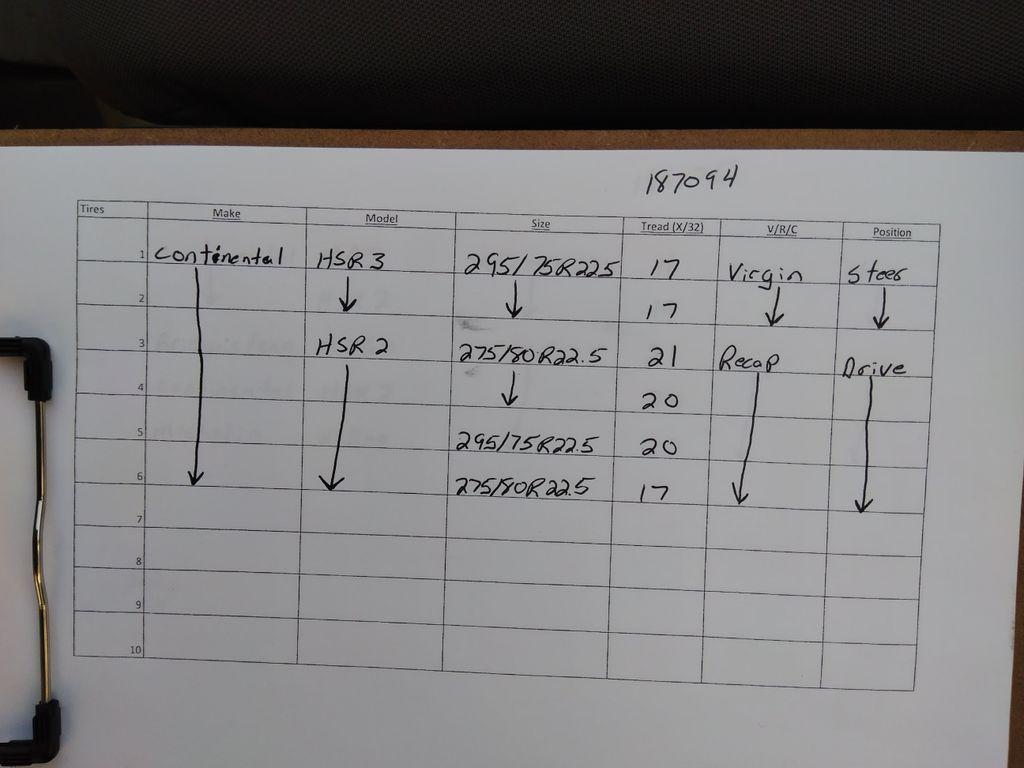 187094
Tires Make Model Size Tread (X/32) V/R/C Position
1 Continental HSR3 295/75R225 17 Virgin Steer
2 17
3 HSR2 275/80R22.5 21 Recap Drive
4 20
5 295/75R22.5 20
6 275/80R22.5 17
7
8
9
10